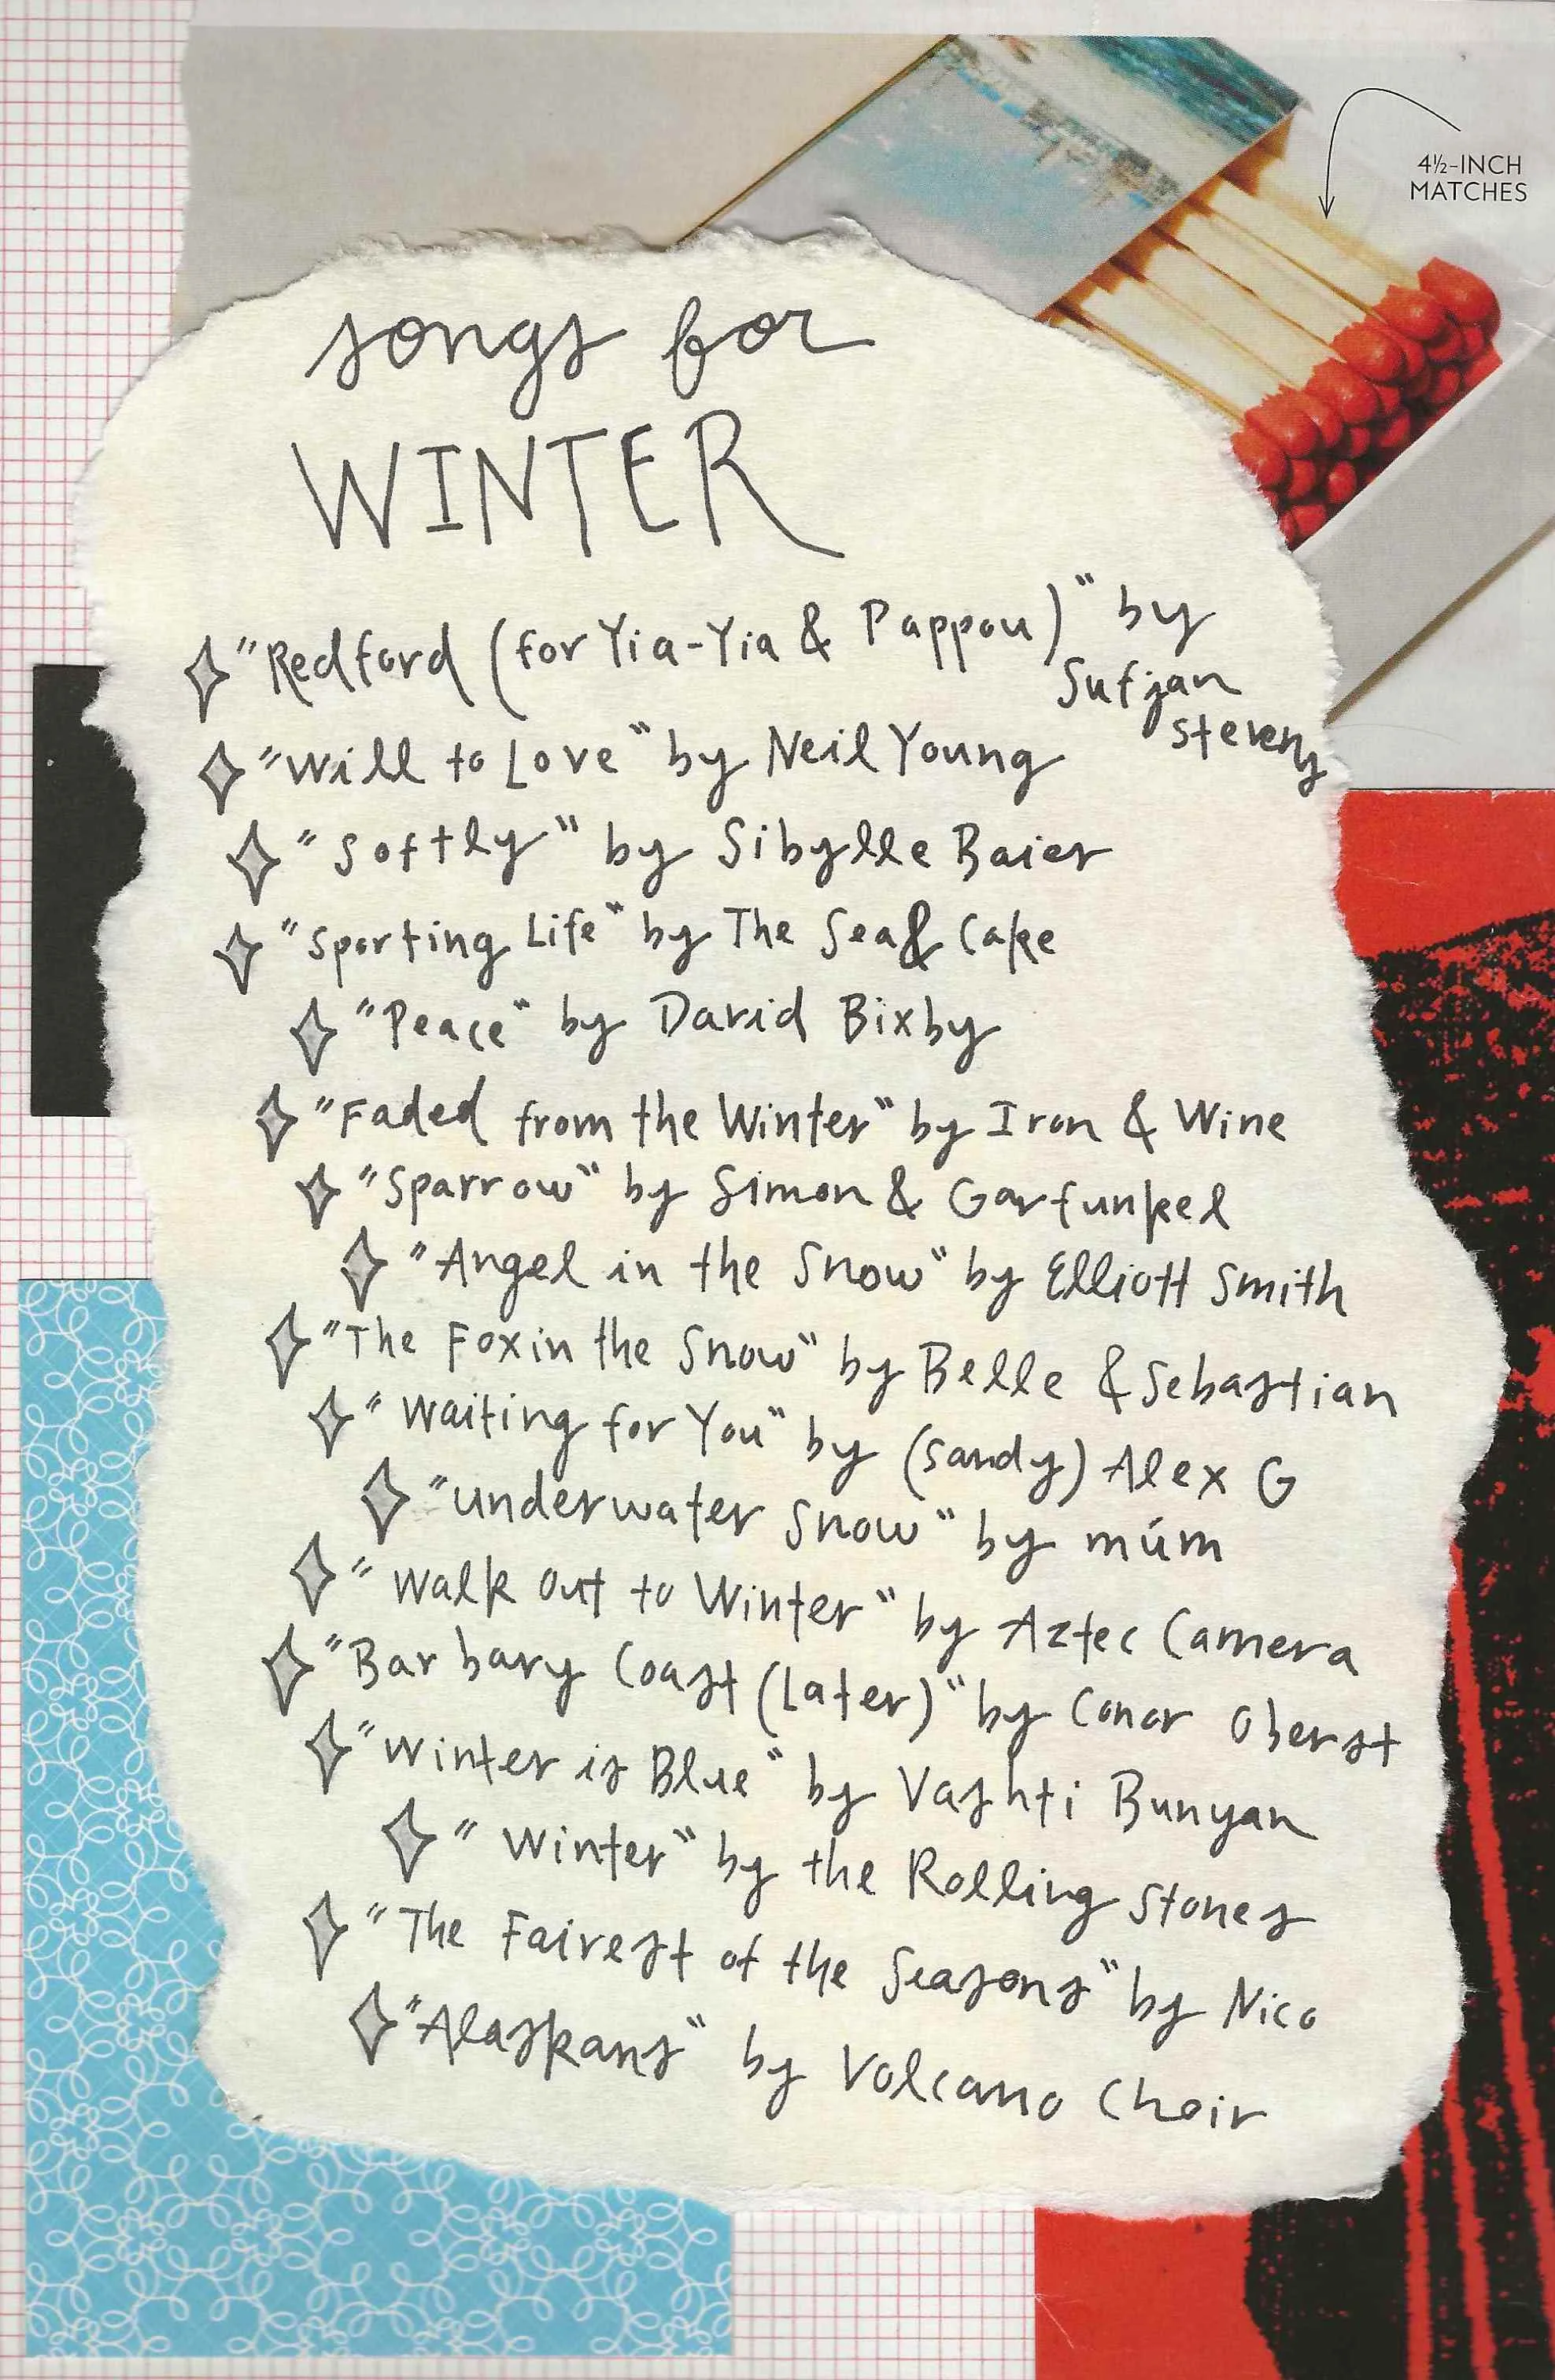 4½-INCH
MATCHES
songs for
WINTER
"Redford (for Yia-Yia & Pappou)" by
Sufjan
Stevens
"Will to Love" by Neil Young
"Softly" by Sibylle Baier
"Sporting Life" by The Sea & Cake
"Peace" by David Bixby
"Faded from the Winter" by Iron & Wine
"Sparrow" by Simon & Garfunkel
"Angel in the Snow" by Elliott Smith
"The Fox in the Snow" by Belle & Sebastian
"Waiting for You" by (Sandy) Alex G
"Underwater Snow" by múm
"Walk Out to Winter" by Aztec Camera
"Barbary Coast (Later)" by Conor Oberst
"Winter is Blue" by Vashti Bunyan
"Winter" by the Rolling Stones
"The Fairest of the Seasons" by Nico
"Alaskans" by Volcano Choir